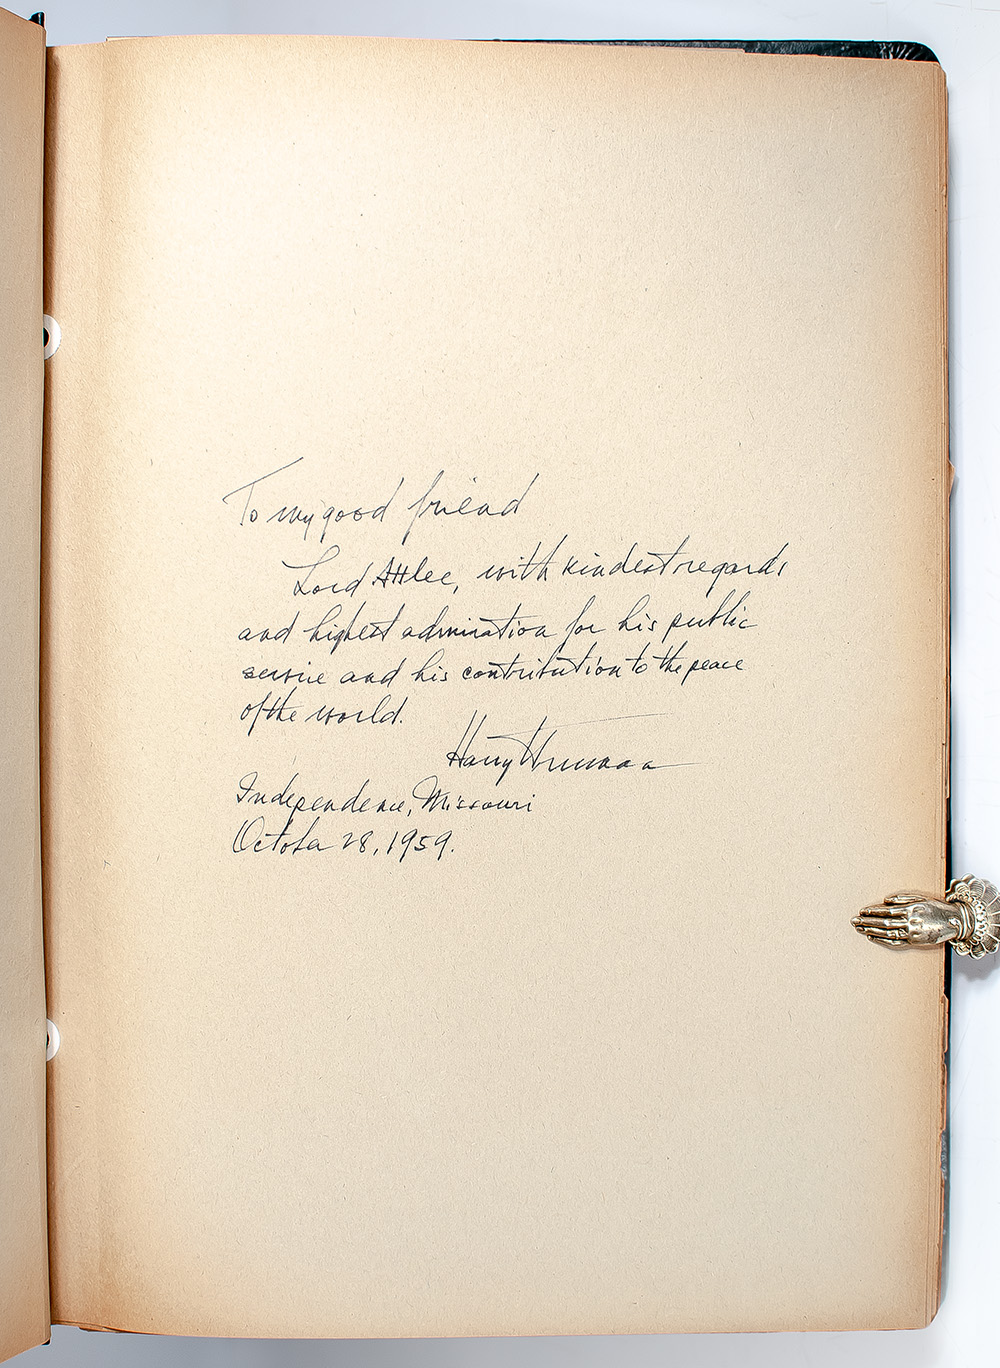 To my good friend
Lord Attlee, with kindest regards
and highest admiration for his public
service and his contribution to the peace
of the world.
Harry Truman
Independence, Missouri
October 28, 1959.